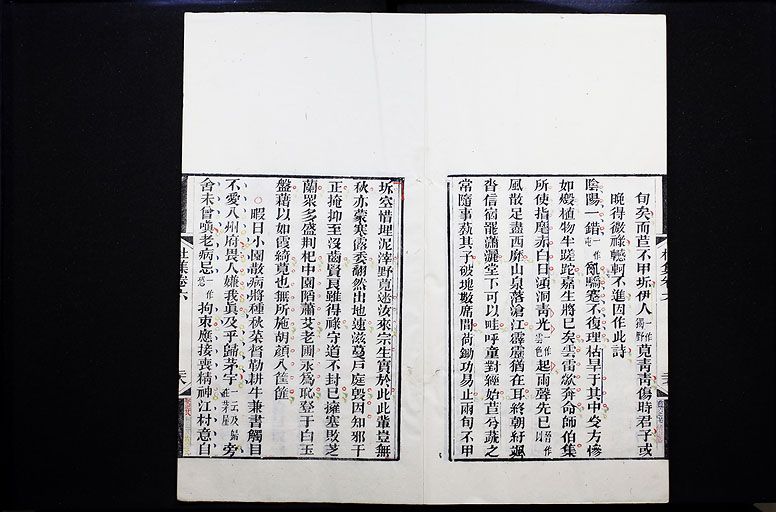 旬矣而苣不甲坼伊人一作獨野莧青青傷時君子或
晚得微祿轗軻不進因作此詩
陰陽一錯一作屯亂驕蹇不復理枯旱于其中炎方慘
如燬植物半蹉跎嘉生將已矣雲雷欻奔命師伯集
所使指麾赤白日澒洞青光一作雲色起雨聲先已晉作以
風散足盡西靡山泉落滄江霹靂猶在耳終朝紆颯
沓信宿罷瀟灑堂下可以畦呼童對經始苣兮蔬之
常隨事蓺其子破塊數席間荷鋤功易止兩旬不甲
坼空惜埋泥滓野莧迷汝來宗生實於此此輩豈無
秋亦蒙寒露委翻然出地速滋蔓戶庭毀因知邪干
正掩抑至沒齒賢良雖得祿守道不封己擁塞敗芝
蘭眾多盛荊杞中園陷蕭艾老圃永為恥登于白玉
盤藉以如霞綺莧也無所施胡顏入筐篚
暇日小園散病將種秋菜督勒耕牛兼書觸目
不愛入州府畏人嫌我真及乎歸茅宇一云及歸在茅屋旁
舍未曾嗔老病忌一作恐拘束應接喪精神江村意自
杜集卷六